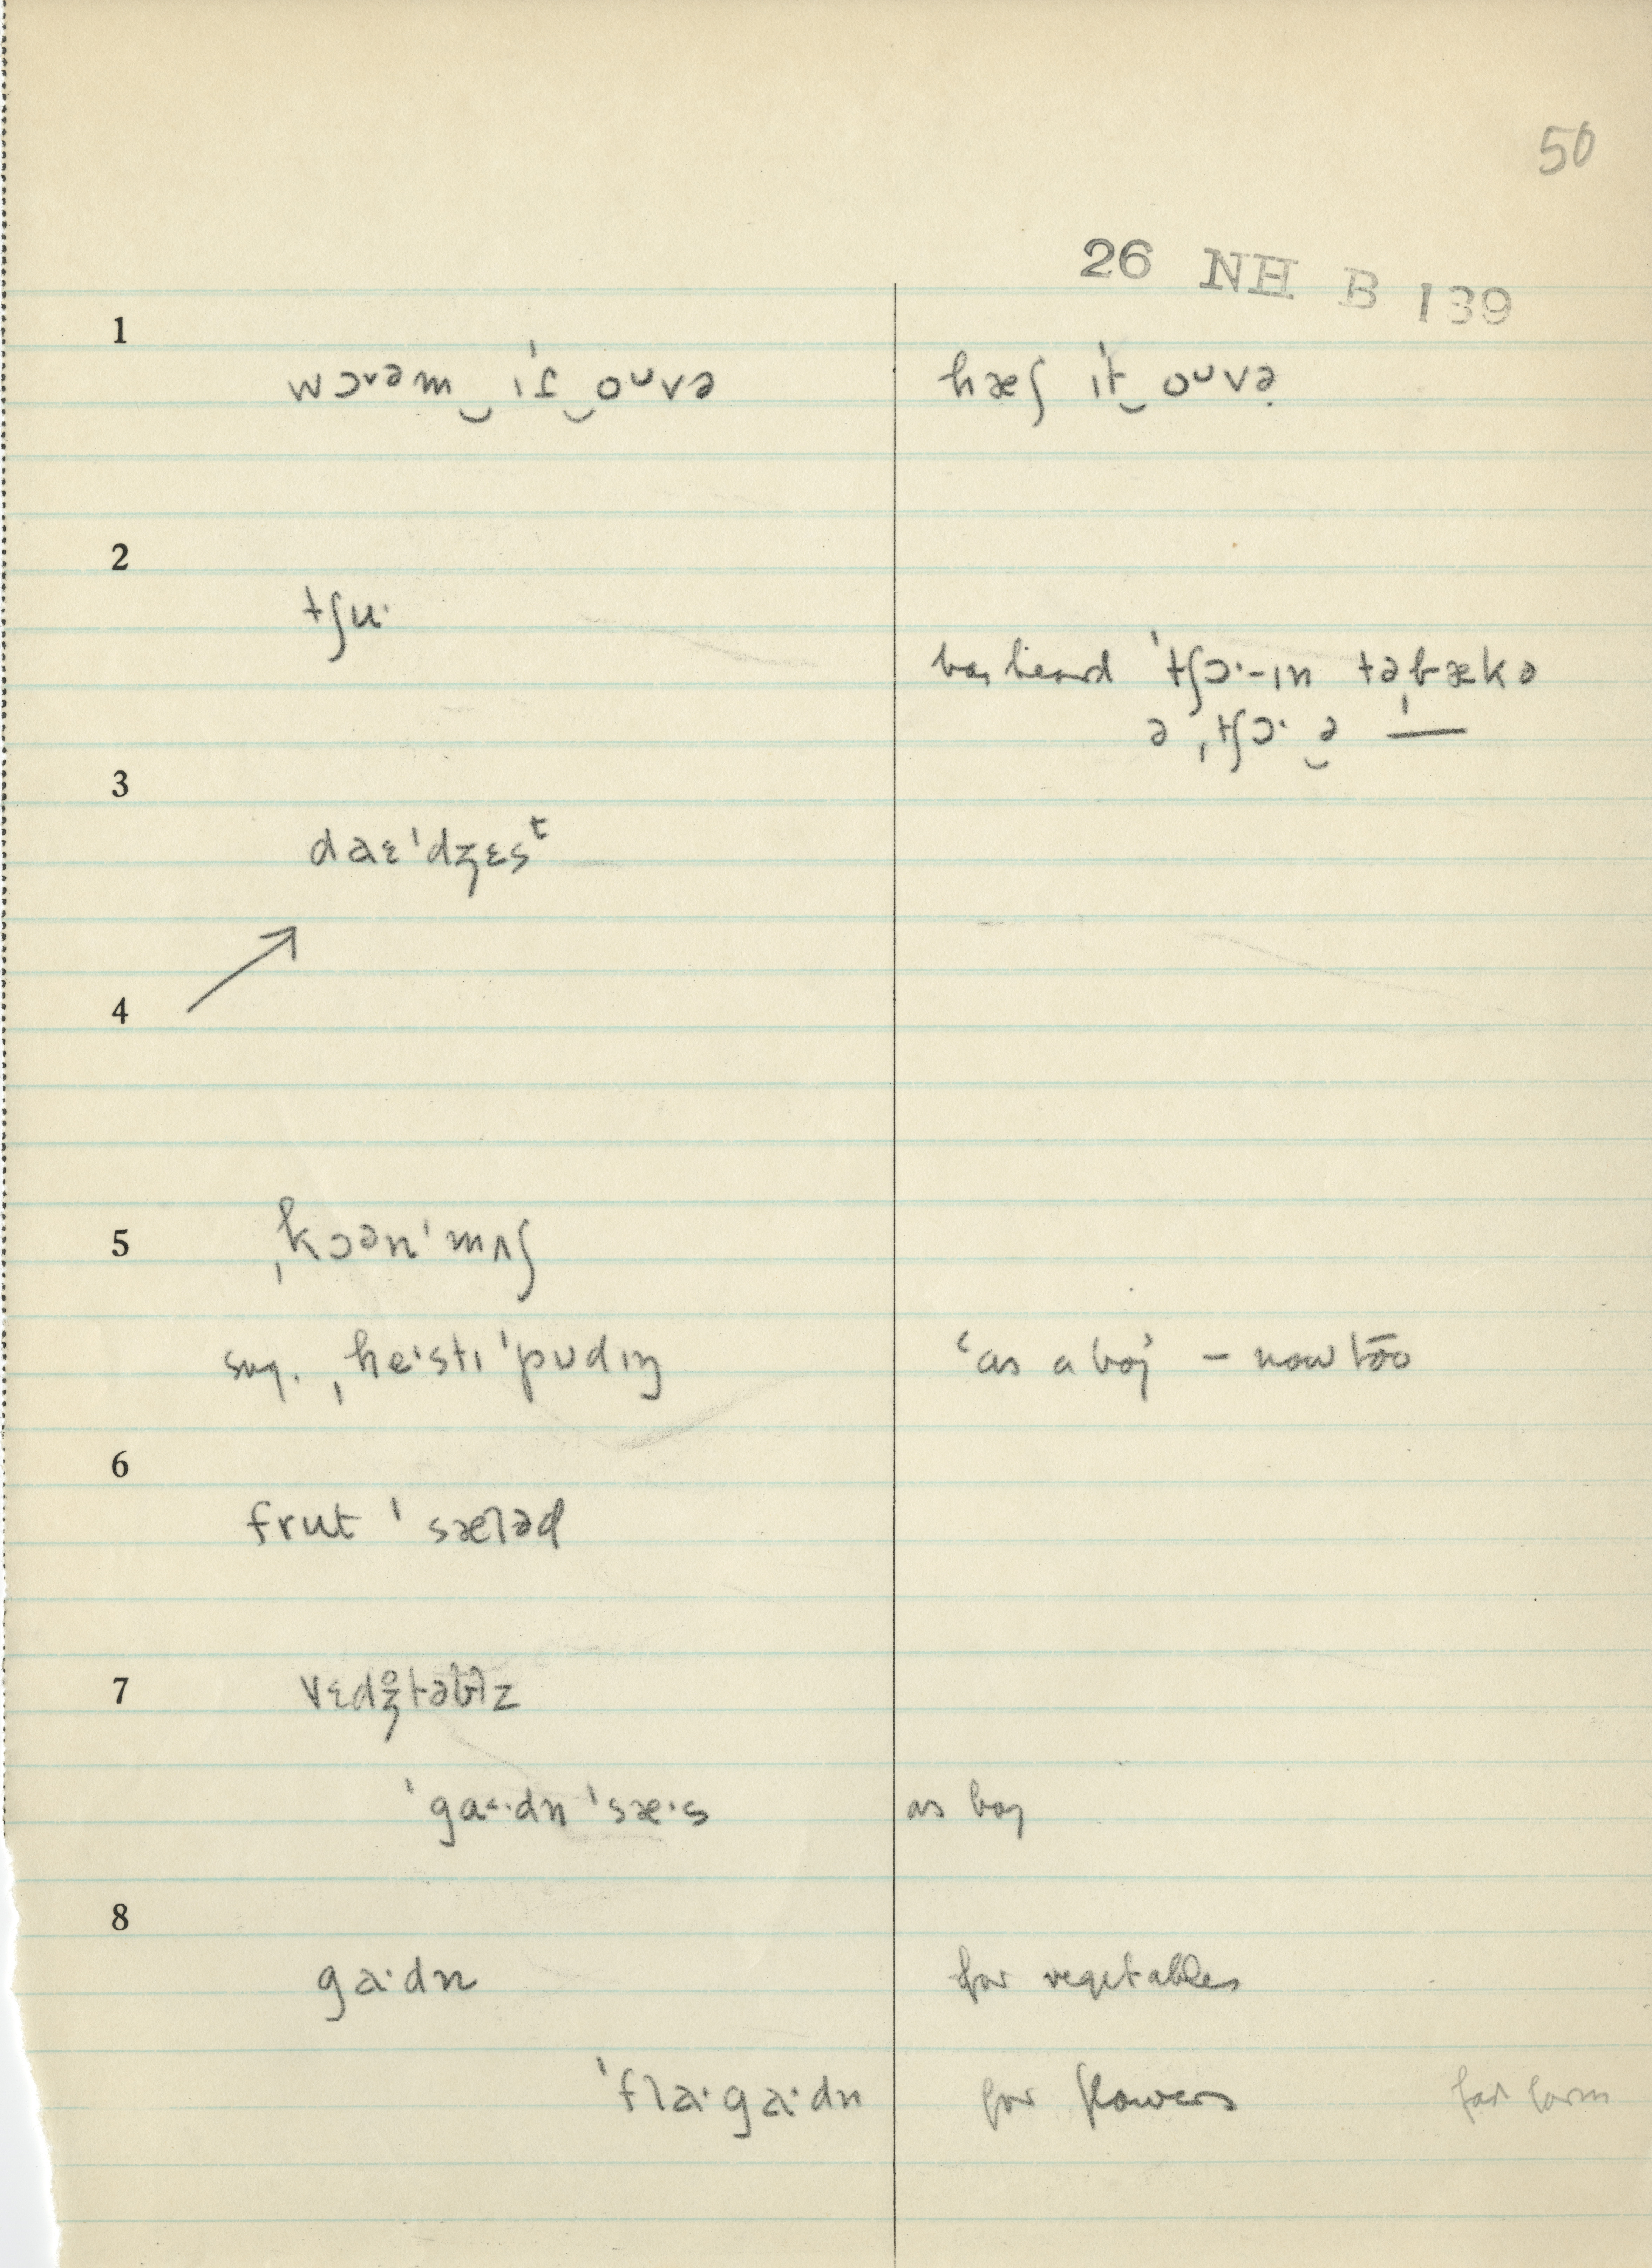 50
26 NH B 139
1
wɔ˞əm‿ˈɪt̬‿oᴜvə hæʃ ˈɪt‿oᴜvə
2
tʃuˑ
has heard ˈtʃɔˑ-ɪn təˌbækə
ə ˌtʃɔˑ‿ə ˈ—
3
daɛˈdʒɛsᵗ
4
5
ˌkɔənˈmʌʃ
sug. ˌheˑstɪˈpᴜdɪŋ ‘as a boy’ – now too
6
frut ˈsæləd
7
vɛdʒ̊təblz
ˈgaˑdn ˈsæˑs as boy
8
gaˑdn for vegetables
ˈflaˑgaˑdn for flowers